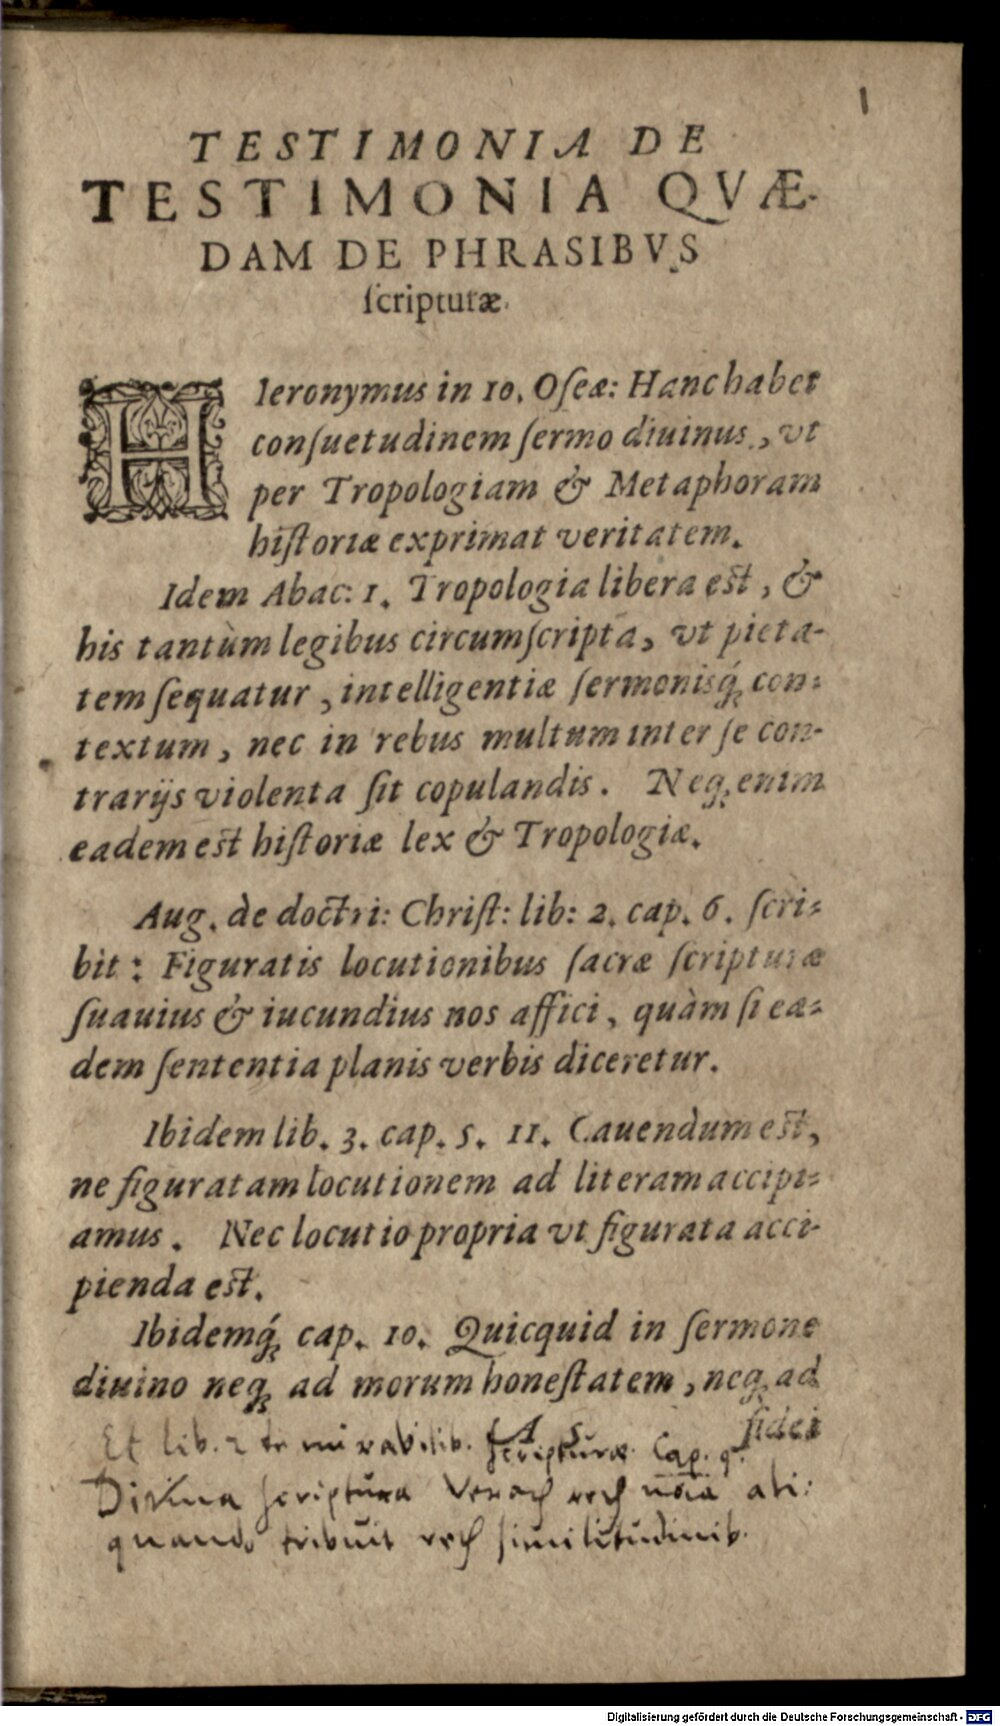 1
TESTIMONIA DE
TESTIMONIA QVÆ-
DAM DE PHRASIBVS
ſcripturæ.
HIeronymus in 10. Oſeæ: Hanc habet
conſuetudinem ſermo diuinus, vt
per Tropologiam & Metaphoram
hiſtoriæ exprimat veritatem.
Idem Abac: 1. Tropologia libera est, &
his tantùm legibus circumſcripta, vt pieta-
tem ſequatur, intelligentiæ ſermonisq́; con-
textum, nec in rebus multum inter ſe con-
trarijs violenta ſit copulandis. Neq; enim
eadem est hiſtoriæ lex & Tropologiæ.
Aug. de doctri: Chriſt: lib: 2. cap. 6. ſcri-
bit: Figuratis locutionibus ſacræ ſcripturæ
ſuauius & iucundius nos affici, quàm ſi ea-
dem ſententia planis verbis diceretur.
Ibidem lib. 3. cap. 5. 11. Cauendum est,
ne figuratam locutionem ad literam accipi-
amus. Nec locutio propria vt figurata acci-
pienda est.
Ibidemq́; cap. 10. Quicquid in ſermone
diuino neq; ad morum honeſtatem, neq; ad
A
fidei
Et lib. 2 de mirabilib. ſcripturæ. Cap. 9.
Divina ſcriptura noīa ali:
quando tribuit ſimilitudinib.